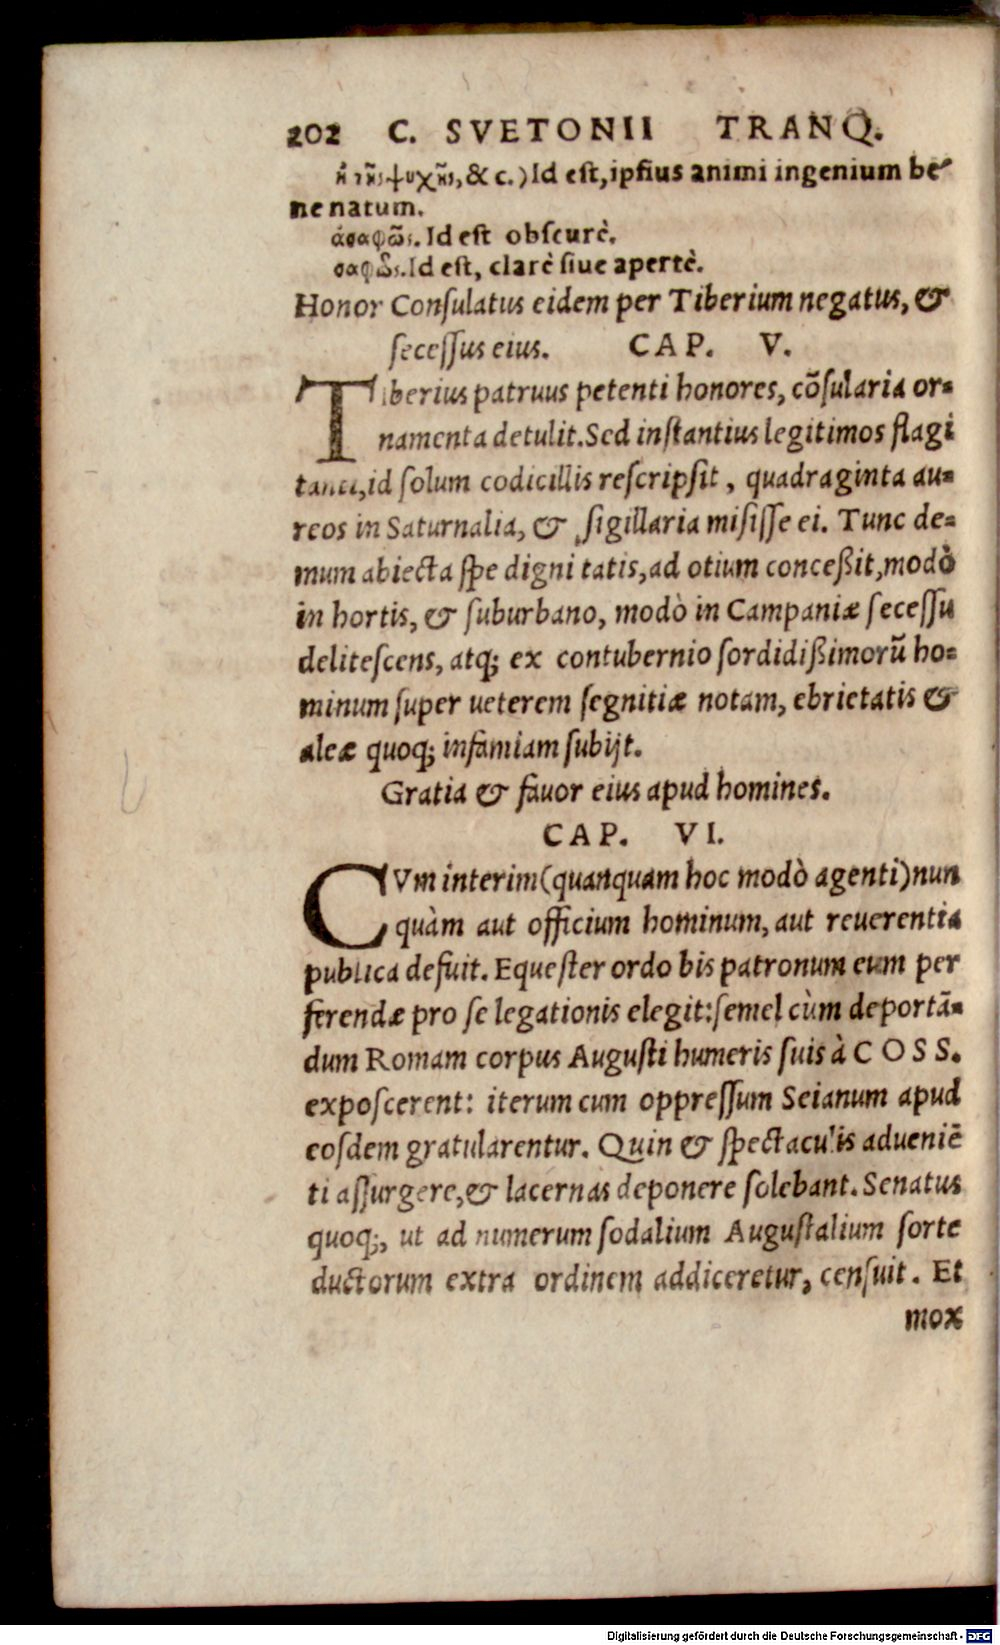 202 C. SVETONII TRANQ.
ἡ τῆς ψυχῆς, & c.) Id est, ipsius animi ingenium be-
ne natum.
ἀσαφῶς. Id est obscurè.
σαφῶς. Id est, clarè siue apertè.
Honor Consulatus eidem per Tiberium negatus, &
secessus eius. CAP. V.
Tiberius patruus petenti honores, cõsularia or-
namenta detulit. Sed instantius legitimos flagi
tanti, id solum codicillis rescripsit, quadraginta au-
reos in Saturnalia, & sigillaria misisse ei. Tunc de-
mum abiecta spe digni tatis, ad otium conceßit, modò
in hortis, & suburbano, modò in Campaniæ secessu
delitescens, atq; ex contubernio sordidißimorũ ho-
minum super ueterem segnitiæ notam, ebrietatis &
aleæ quoq; infamiam subijt.
Gratia & fauor eius apud homines.
CAP. VI.
CVm interim (quanquam hoc modò agenti) nun
quàm aut officium hominum, aut reuerentia
publica defuit. Equester ordo bis patronum eum per
ferendæ pro se legationis elegit: semel cùm deportã-
dum Romam corpus Augusti humeris suis à COSS.
exposcerent: iterum cum oppressum Seianum apud
eosdem gratularentur. Quin & spectaculis adueniẽ
ti assurgere, & lacernas deponere solebant. Senatus
quoq;, ut ad numerum sodalium Augustalium sorte
ductorum extra ordinem addiceretur, censuit. Et
mox
Digitalisierung gefördert durch die Deutsche Forschungsgemeinschaft - DFG